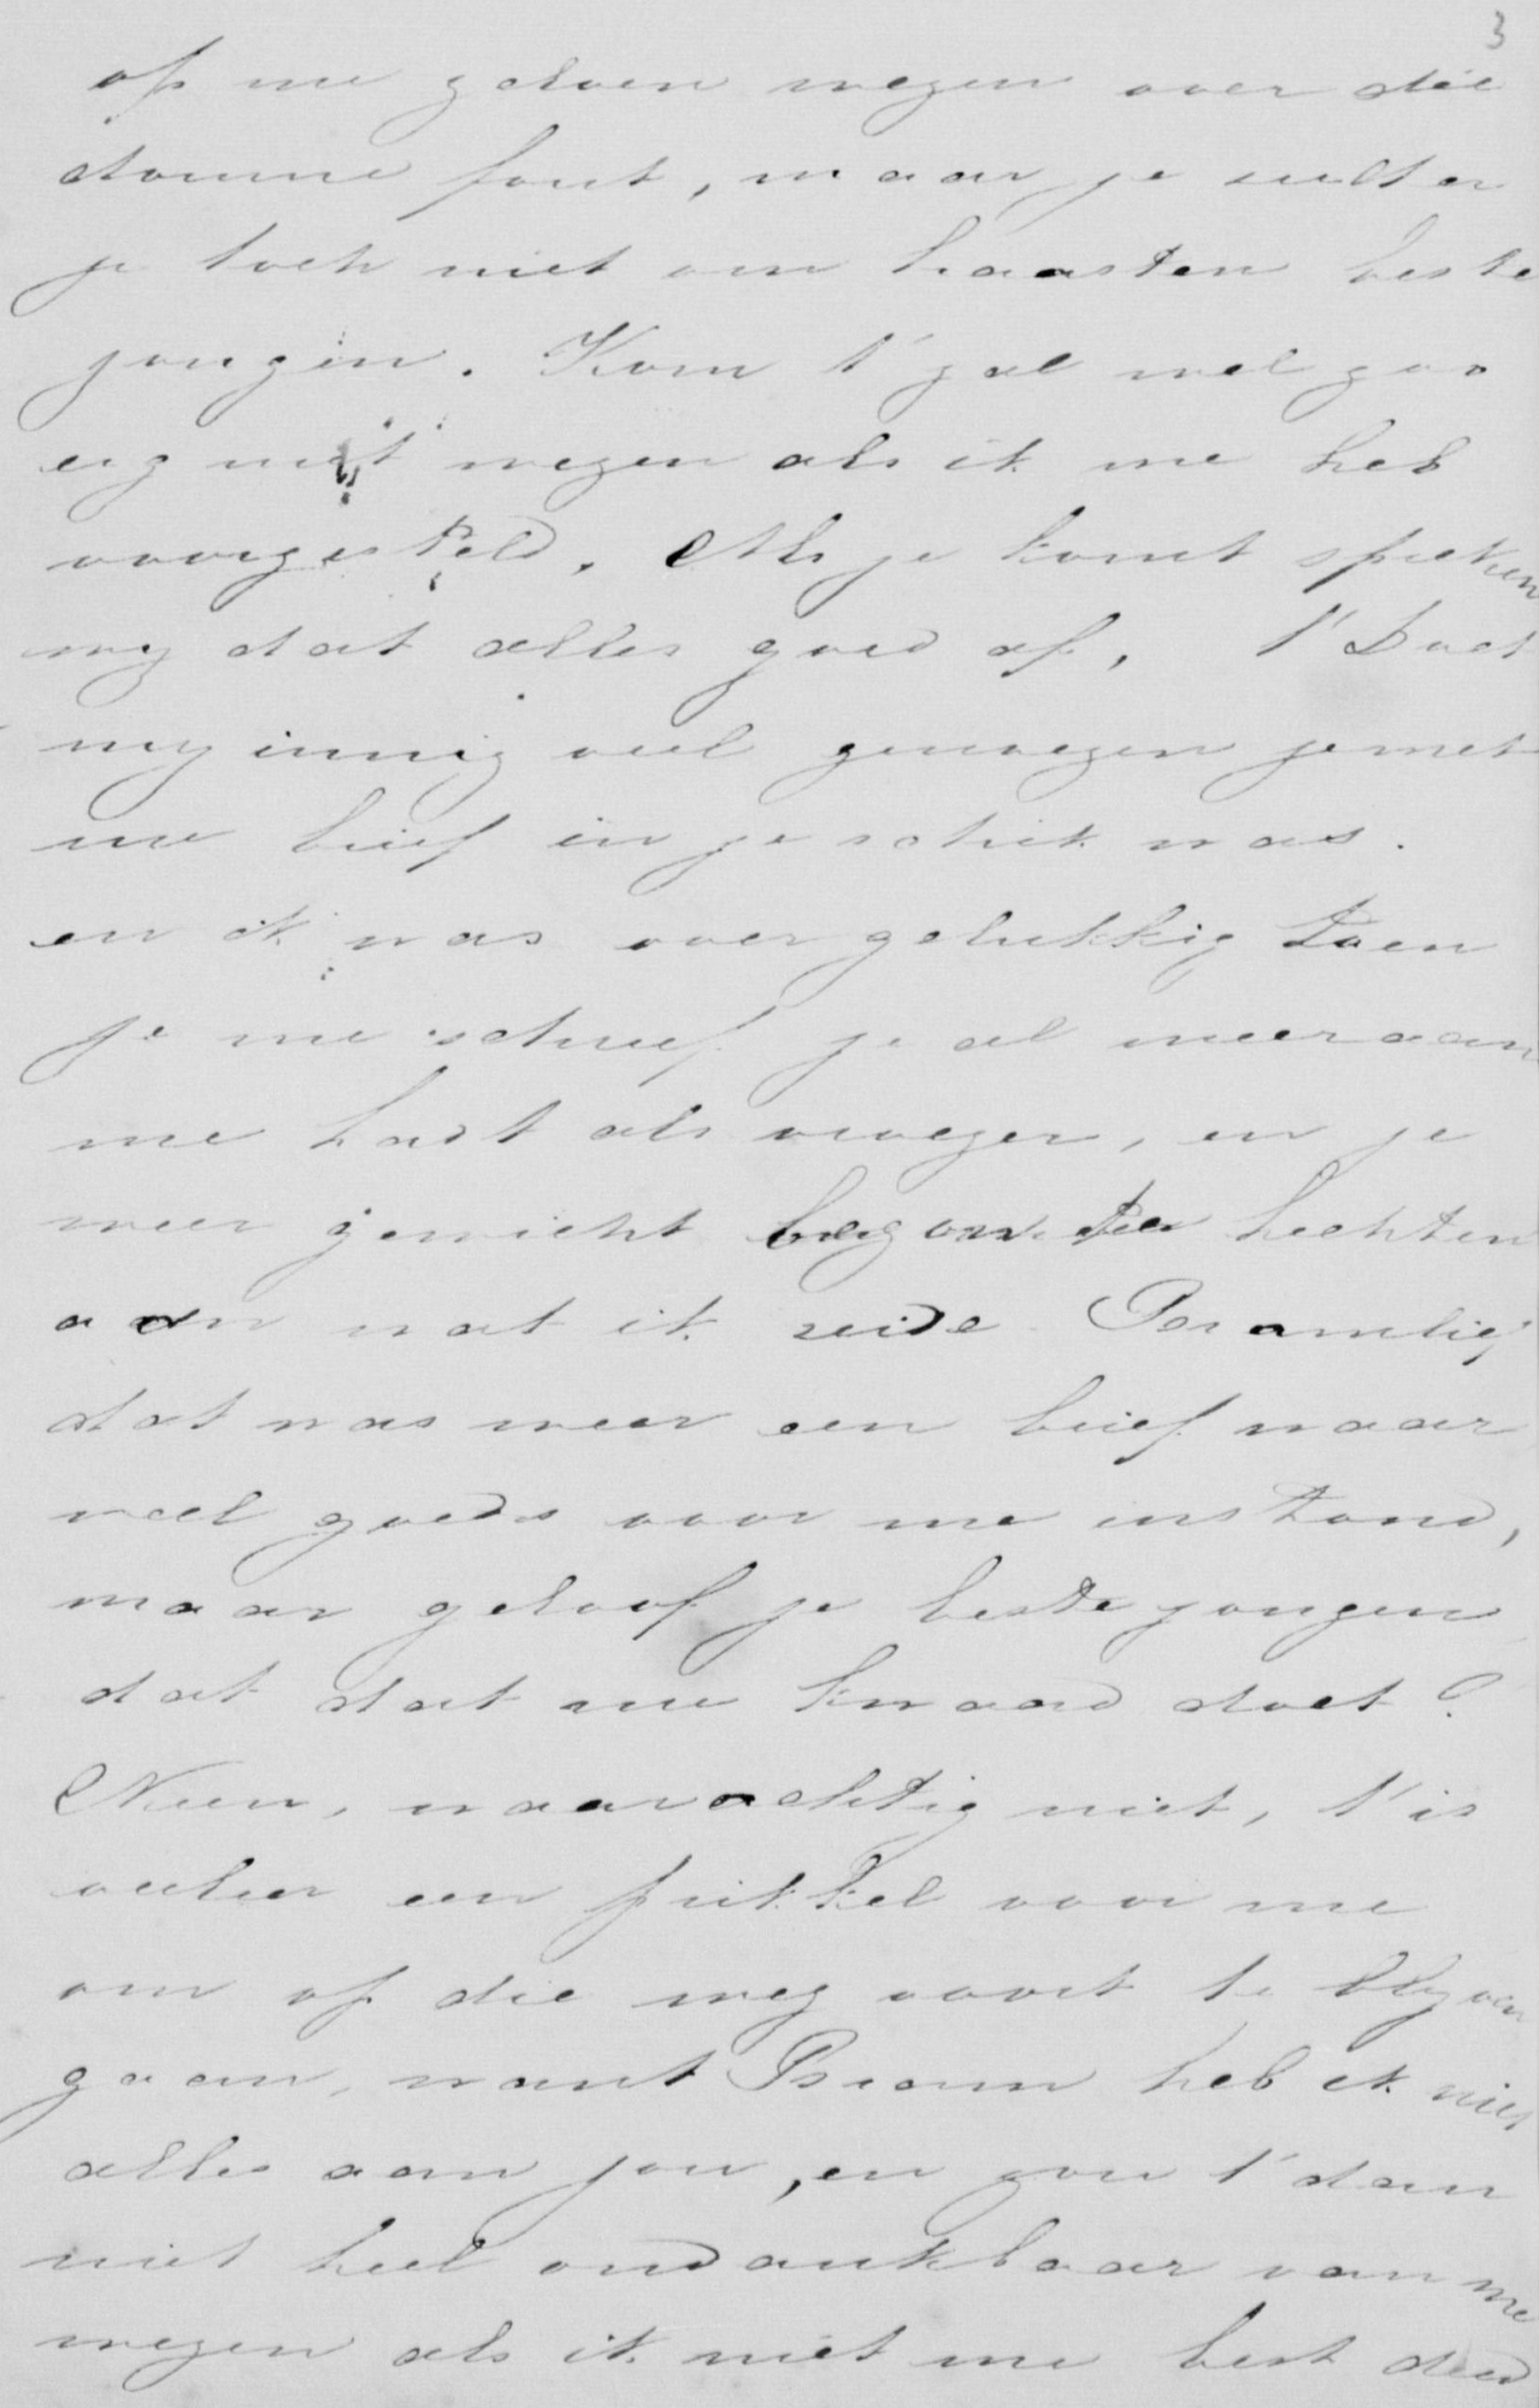 3
op me geloven wezen over die
domme fout, maar je zult er
je toch niet om haasten beste
jongen. Kom t' zal wel zoo
erg niet wezen als ik me heb
voorgesteld. Als je komt spreken
wij dat alles goed af, t' Doet
mij innig veel genoegen je met
me brief in je schik was.
en ik was over gelukkig toen
je me schreef je al meer aan
me hadt als vroeger, en je
meer gewicht begon te hechten
aan wat ik zeide. Bramlief
dat was weer een brief waar
veel goeds voor me instond,
maar geloof je beste jongen
dat dat me kwaad doet?
Neen, waarachtig niet, t' is
eerder een prikkel voor me
om op die weg voort te blijven
gaan, want Bram heb ik niet
alles aan jou, en zou t' dan
niet heel ondankbaar van me
wezen als ik niet me best deed